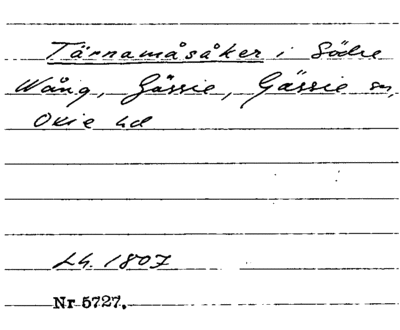 Tärnamåsåker i Södre
Wång, Gässie, Gässie sn,
Oxie hd
Lh. 1807
Nr 5727.